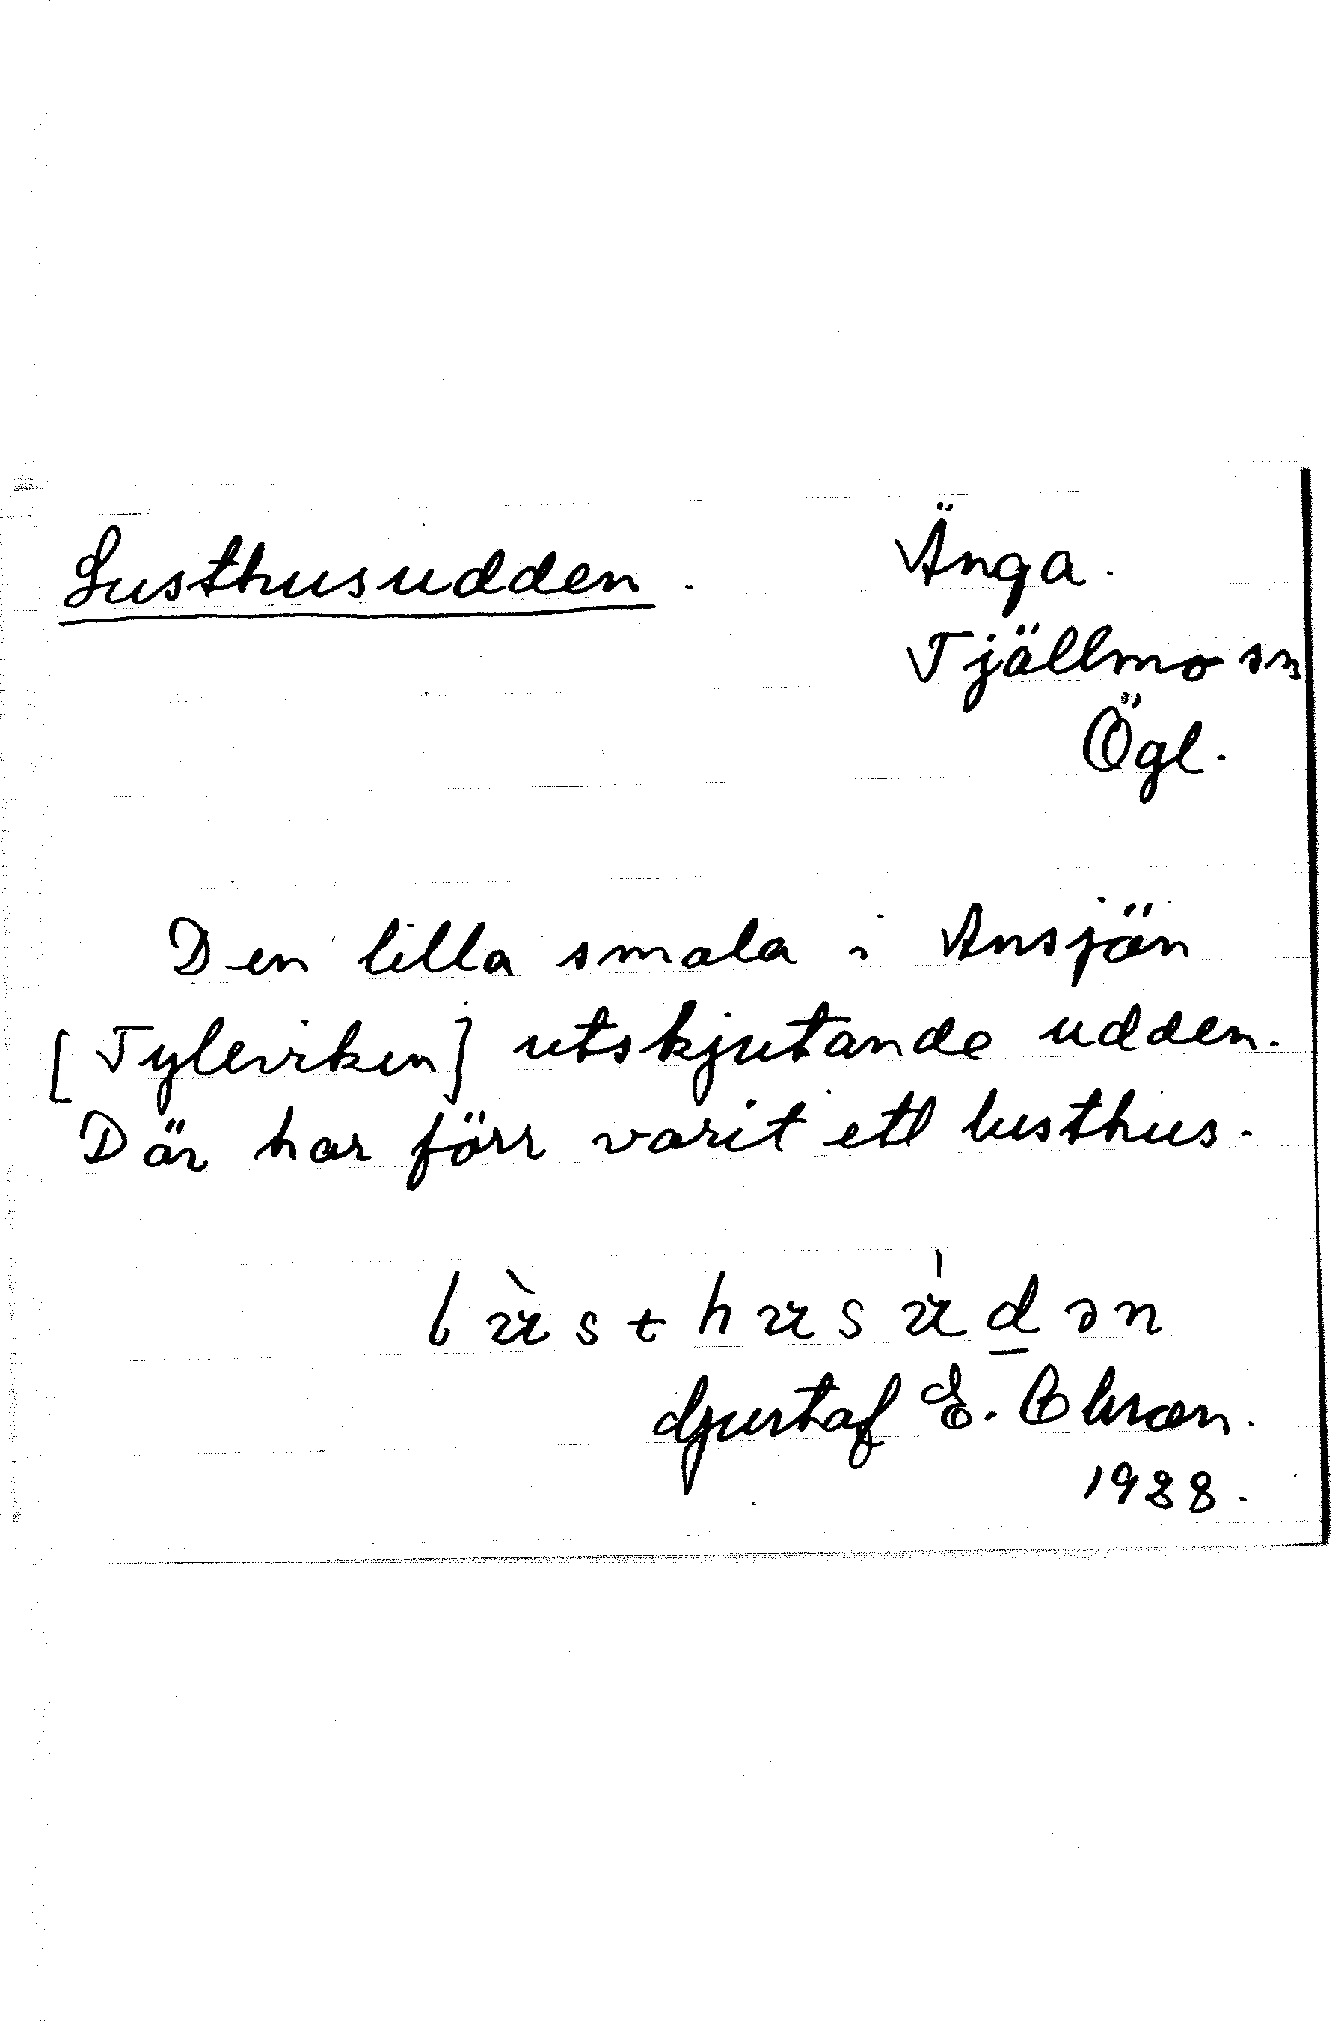 Lusthusudden.
Änga.
Tjällmo sn
Ögl.
Den lilla smala i Ansjön
[Tyleviken] utskjutande udden.
Där har förr varit ett lusthus.
Gustaf E. Olsson.